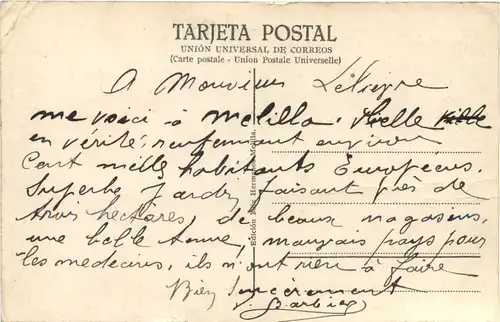 TARJETA POSTAL
UNIÓN UNIVERSAL DE CORREOS
(Carte postale - Union Postale Universelle)
A Monsieur Lelièvre
me voici à Melilla. Belle ville
en vérité, renfermant environ
Cent mille habitants Européens.
Superbe Jardin, faisant près de
trois hectares, de beaux magasins,
une belle tenue, mauvais pays pour
les médecins, ils n'ont rien à faire
Bien sincèrement